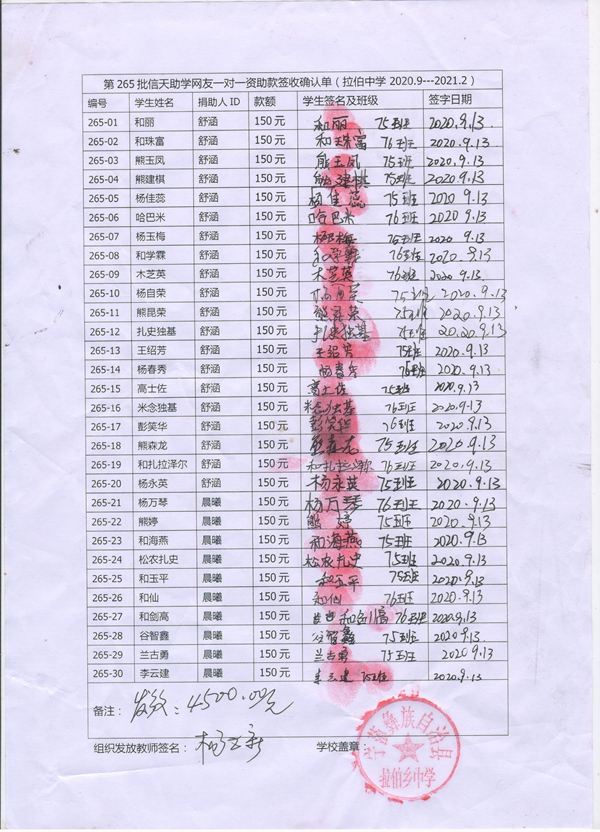 第 265 批信天助学网友一对一资助款签收确认单（ 拉伯中学 2020.9---2021.2 ）
编号 学生姓名 捐助人 ID 款额 学生签名及班级 签字日期
265-01 和丽 舒涵 150 元 和丽 75班 2020.9.13
265-02 和珠富 舒涵 150 元 和珠富 76班 2020.9.13
265-03 熊玉凤 舒涵 150 元 熊玉凤 75班 2020.9.13
265-04 熊建棋 舒涵 150 元 熊建棋 75班 2020.9.13
265-05 杨佳蕊 舒涵 150 元 杨佳蕊 75班 2020.9.13
265-06 哈巴米 舒涵 150 元 哈巴米 76班 2020.9.13
265-07 杨玉梅 舒涵 150 元 75班 2020.9.13
265-08 和学霖 舒涵 150 元 和学霖 76班 2020.9.13
265-09 木芝英 舒涵 150 元 木芝英 76班 2020.9.13
265-10 杨自荣 舒涵 150 元 杨自荣 75班 2020.9.13
265-11 熊昆荣 舒涵 150 元 熊昆荣 75班 2020.9.13
265-12 扎史独基 舒涵 150 元 扎史独基 75班 2020.9.13
265-13 王绍芳 舒涵 150 元 王绍芳 75班 2020.9.13
265-14 杨春秀 舒涵 150 元 杨春秀 76班 2020.9.13
265-15 高士佐 舒涵 150 元 高士佐 75班 2020.9.13
265-16 米念独基 舒涵 150 元 米念独基 76班 2020.9.13
265-17 彭笑华 舒涵 150 元 彭笑华 76班 2020.9.13
265-18 熊森龙 舒涵 150 元 熊森龙 75班 2020.9.13
265-19 和扎拉泽尔 舒涵 150 元 和扎拉 76班 2020.9.13
265-20 杨永英 舒涵 150 元 杨永英 75班 2020.9.13
265-21 杨万琴 晨曦 150 元 杨万琴 76班 2020.9.13
265-22 熊婷 晨曦 150 元 熊婷 75班 2020.9.13
265-23 和海燕 晨曦 150 元 和海燕 75班 2020.9.13
265-24 松农扎史 晨曦 150 元 松农扎史 75班 2020.9.13
265-25 和玉平 晨曦 150 元 和玉平 75班 2020.9.13
265-26 和仙 晨曦 150 元 和仙 76班 2020.9.13
265-27 和剑高 晨曦 150 元 和剑高 76班 2020.9.13
265-28 谷智鑫 晨曦 150 元 谷智鑫 75班 2020.9.13
265-29 兰古勇 晨曦 150 元 兰古勇 75班 2020.9.13
265-30 李云建 晨曦 150 元 李云建 75班 2020.9.13
备注： 发放：4500.00元
组织发放教师签名： 学校盖章：
宁蒗彝族自治县
拉伯乡中学